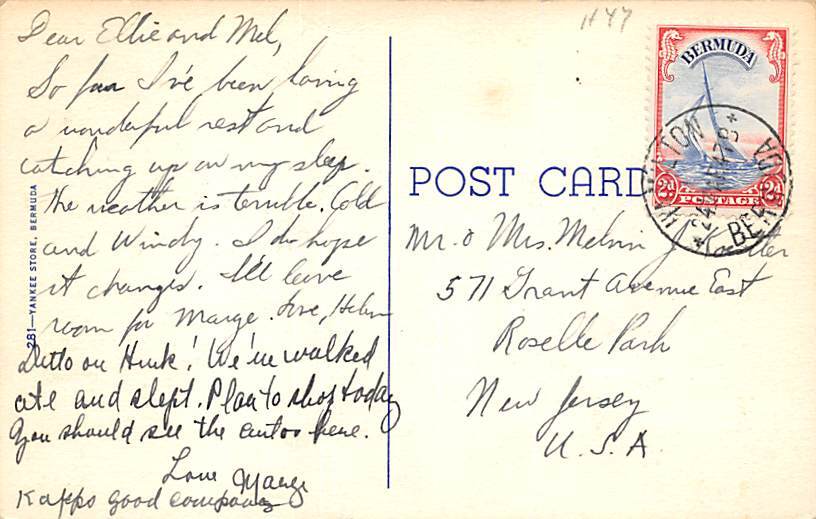 Dear Ellie and Mel,
So far I've been having
a wonderful rest and
catching up on my sleep.
The weather is terrible. Cold
and Windy. I do hope
it changes. I'll leave
room for Marge. Love, Helen
Ditto on Hunk! We've walked
ate and slept. Plan to shop today
You should see the autos here.
Love Marge
Kapps good company
281—YANKEE STORE, BERMUDA
H47
POST CARD
BERMUDA
2d 2d
POSTAGE
HAMILTON
BERMUDA
Mr. & Mrs. Melvin J.
571 Grant Avenue East
Roselle Park
New Jersey
U.S.A.